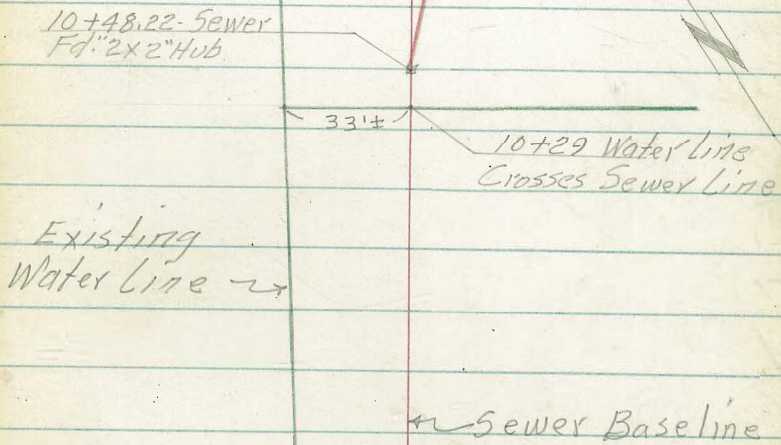 10+48.22-Sewer
Fd. "2x2" Hub
33'±
10+29 Water line
Crosses Sewer Line
Existing
Water Line
Sewer Baseline